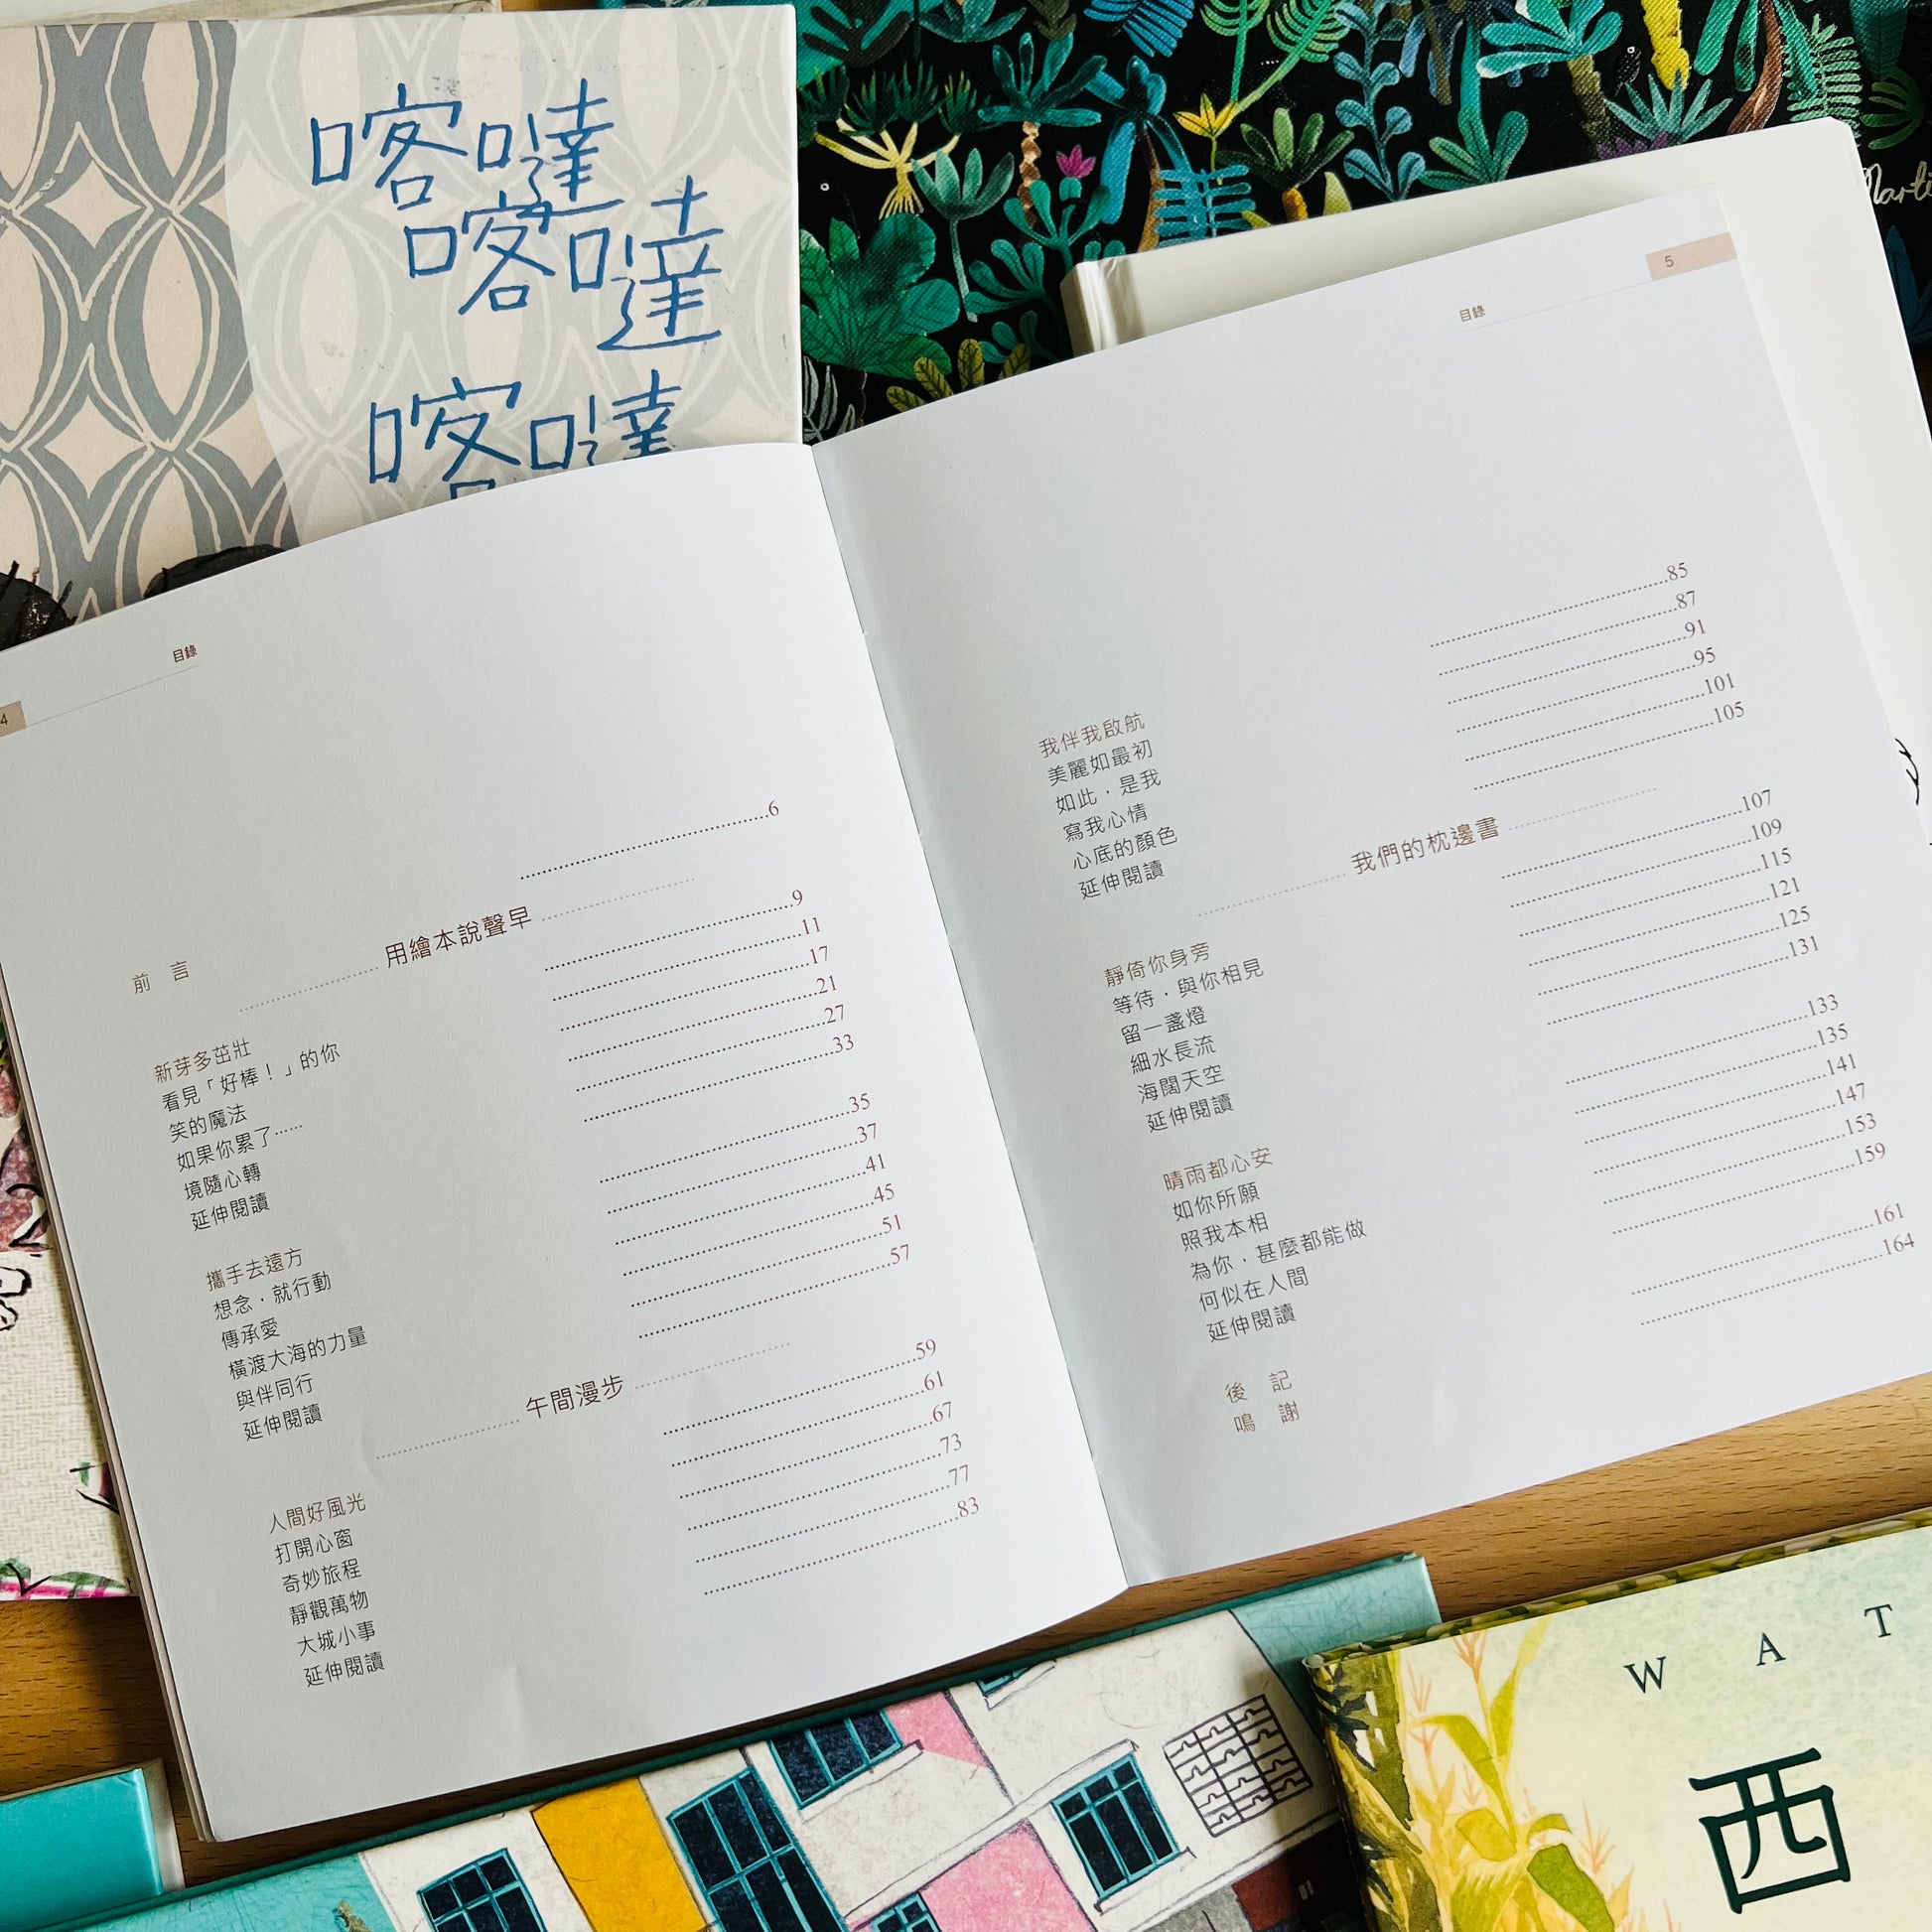 喀噠
喀噠
喀噠
Marti
4
目錄
前 言 6
用繪本說聲早
新芽多茁壯 9
看見「好棒！」的你 11
笑的魔法 17
如果你累了…… 21
境隨心轉 27
延伸閱讀 33
攜手去遠方 35
想念，就行動 37
傳承愛 41
橫渡大海的力量 45
與伴同行 51
延伸閱讀 57
午間漫步
人間好風光 59
打開心窗 61
奇妙旅程 67
靜觀萬物 73
大城小事 77
延伸閱讀 83
5
目錄
我伴我啟航 85
美麗如最初 87
如此，是我 91
寫我心情 95
心底的顏色 101
延伸閱讀 105
我們的枕邊書
靜倚你身旁 107
等待，與你相見 109
留一盞燈 115
細水長流 121
海闊天空 125
延伸閱讀 131
晴雨都心安 133
如你所願 135
照我本相 141
為你，甚麼都能做 147
何似在人間 153
延伸閱讀 159
後 記 161
鳴 謝 164
W A T
西